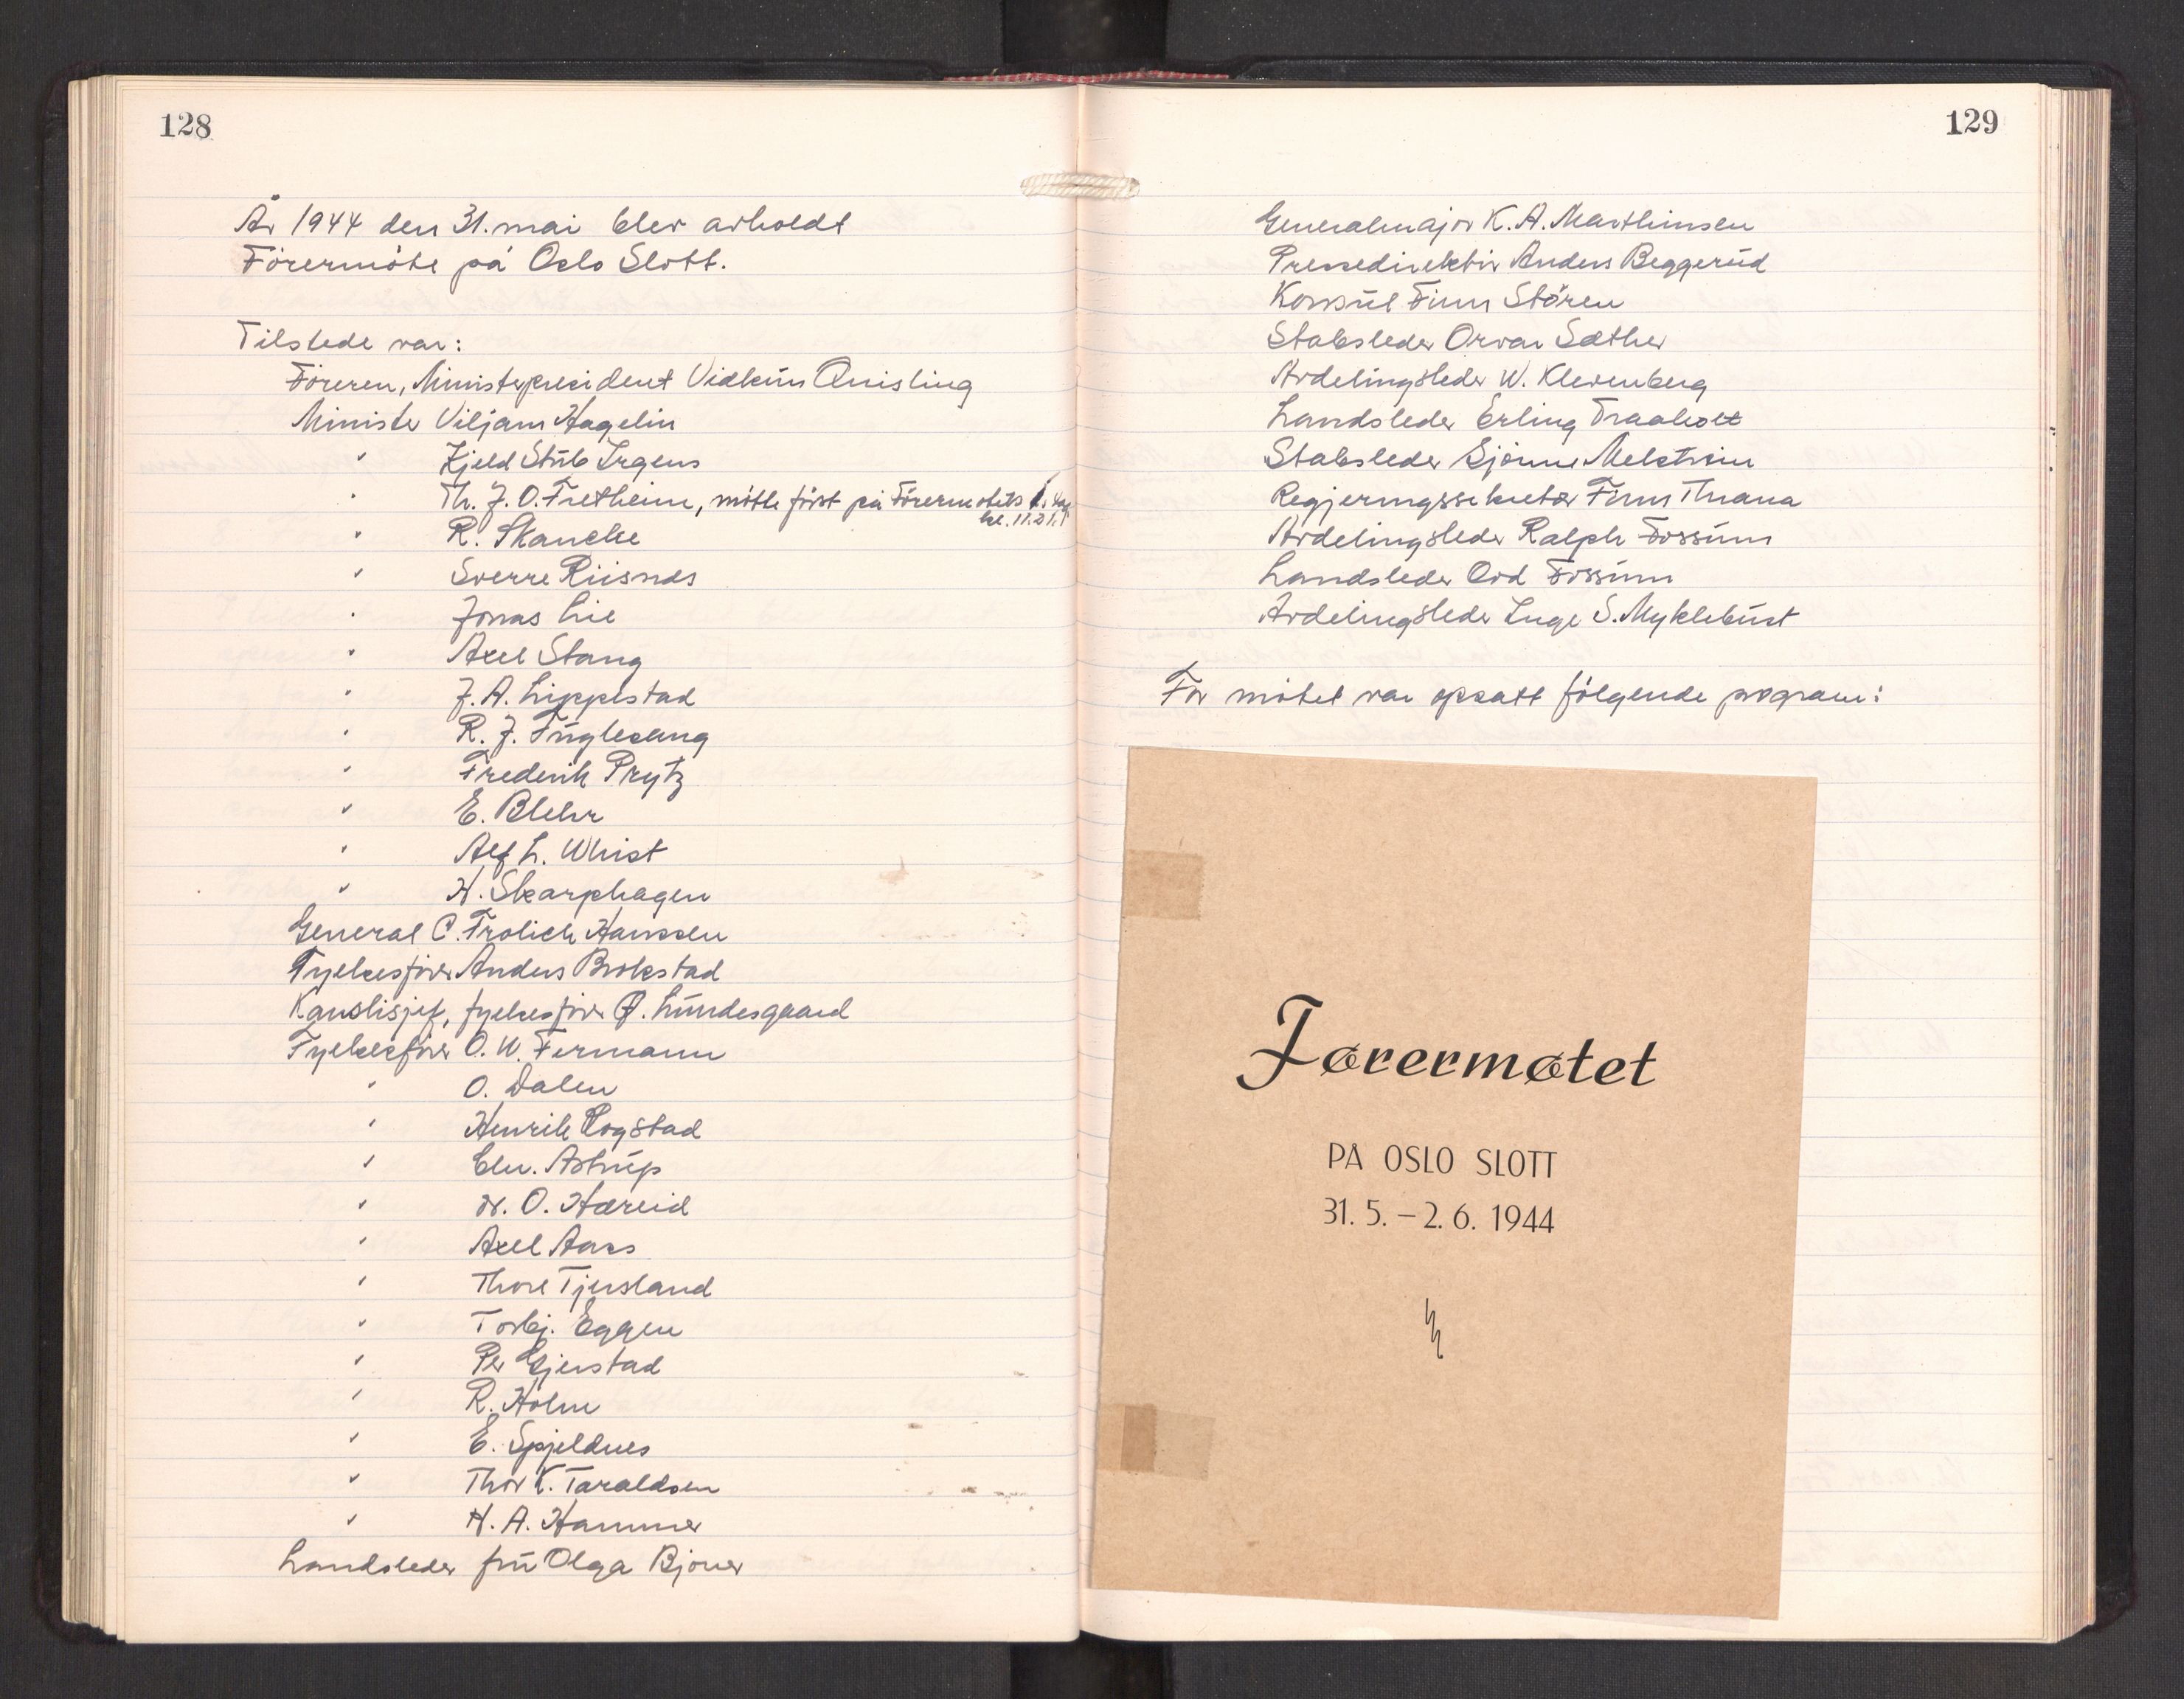 128
År 1944 den 31. mai blev avholdt
Førermøte på Oslo Slott.
Tilstede var:
Føreren, Ministerpresident Vidkun Quisling
Minister Viljam Hagelin
" Kjeld Stub Irgens
" Th. J. O. Fretheim, møtte først på Førermøtets 1. dag
kl. 11.21.
" R. Skancke
" Sverre Riisnæs
" Jonas Lie
" Axel Stang
" J. A. Lippestad
" R. J. Fuglesang
" Frederik Prytz
" E. Blehr
" Alf L. Whist
" H. Skarphagen
General C. Frølich Hanssen
Fylkesfører Anders Brokstad
Kanslisjef, fylkesfører Ø. Lundesgaard
Fylkesfører O. W. Fermann
" O. Dalen
" Henrik Rogstad
" Chr. Astrup
" N. O. Hæreid
" Axel Aass
" Thore Tjersland
" Torbj. Eggen
" Per Gjerstad
" R. Holm
" E. Spjeldnes
" Thor K. Taraldsen
" H. A. Hammer
Landsleder fru Olga Bjoner
129
Generalmajor K. A. Marthinsen
Pressedirektør Anders Beggerud
Konsul Finn Støren
Stabsleder Orvar Sæther
Avdelingsleder W. Klevenberg
Landsleder Erling Traaholt
Stabsleder Sjönne Melstrøm
Regjeringssekretær Finn Thrana
Avdelingsleder Ralph Fossum
Landsleder Odd Fossum
Avdelingsleder Inge S. Myklebust
For møtet var opsatt følgende program:
Førermøtet
PÅ OSLO SLOTT
31. 5. – 2. 6. 1944